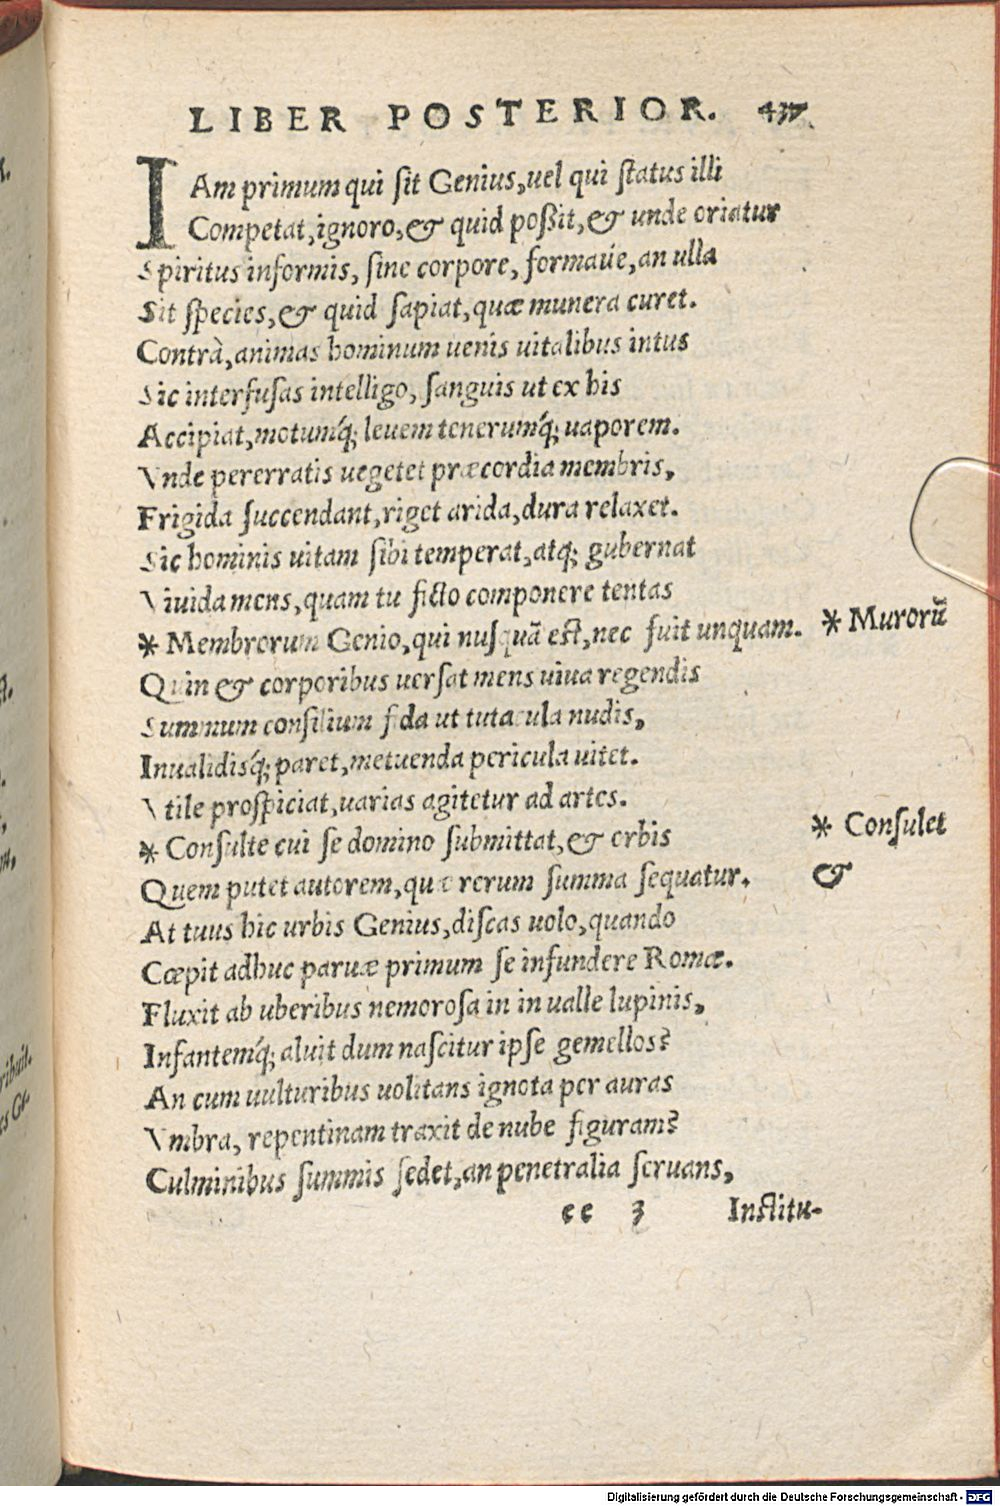 LIBER POSTERIOR. 437
IAm primum qui ſit Genius, uel qui ſtatus illi
Competat, ignoro, & quid poßit, & unde oriatur
Spiritus informis, ſine corpore, formaúe, an ulla
Sit ſpecies, & quid ſapiat, quæ munera curet.
Contrà, animas hominum uenis uitalibus intus
Sic interfuſas intelligo, ſanguis ut ex his
Accipiat, motumq́; leuem tenerumq́; uaporem.
Vnde pererratis uegetet præcordia membris,
Frigida ſuccendant, riget arida, dura relaxet.
Sic hominis uitam ſibi temperat, atq; gubernat
Viuida mens, quam tu ficto componere tentas
* Membrorum Genio, qui nuſquã eſt, nec fuit unquam. * Murorũ
Quin & corporibus uerſat mens uiua regendis
Summum conſilium fida ut tutacula nudis,
Inualidisq́; paret, metuenda pericula uitet.
Vtile proſpiciat, uarias agitetur ad artes.
* Conſulte cui ſe domino ſubmittat, & orbis * Conſulet
Quem putet autorem, quæ rerum ſumma ſequatur. &
At tuus hic urbis Genius, diſcas uolo, quando
Cœpit adhuc paruæ primum ſe infundere Romæ.
Fluxit ab uberibus nemoroſa in in ualle lupinis,
Infantemq́; aluit dum naſcitur ipſe gemellos?
An cum uulturibus uolitans ignota per auras
Vmbra, repentinam traxit de nube figuram?
Culminibus ſummis ſedet, an penetralia ſeruans,
ee 3 Inſtitu-
ribuit.
Digitalisierung gefördert durch die Deutsche Forschungsgemeinschaft - DFG